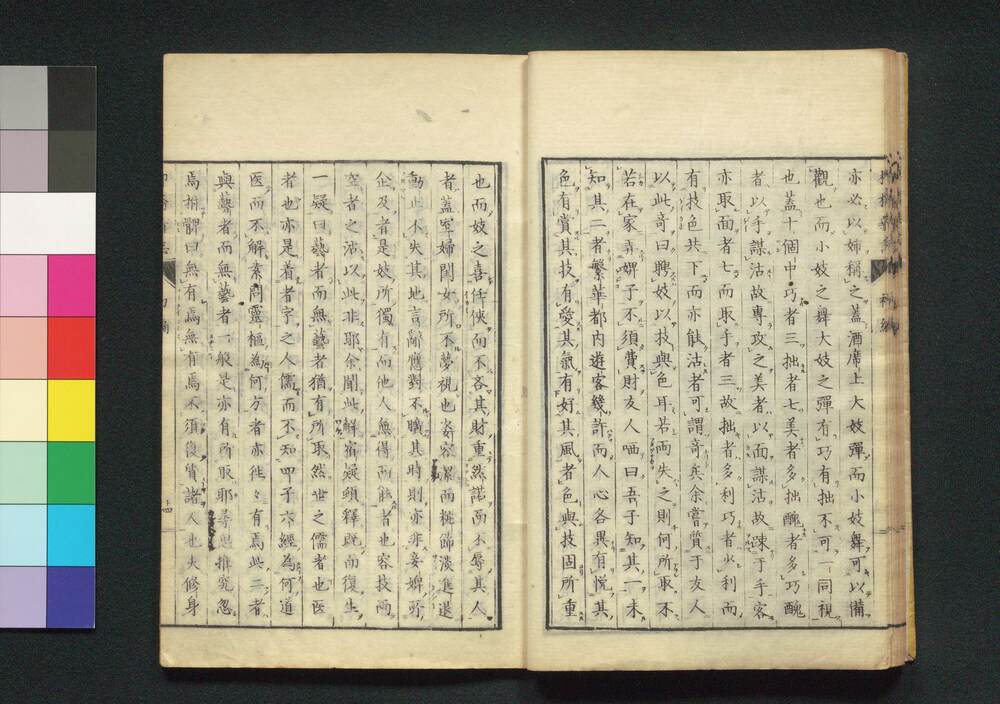 亦必以姉稱之蓋酒席上大妓彈而小妓舞可以備
觀也而小妓之舞大妓之彈有巧有拙不可一同視
也蓋十個中巧者三拙者七美者多拙醜者多巧醜
者以手謀沽故專攻之美者以面謀沽故踈于手客
亦取面者七而取手者三故拙者多利巧者少利而
有技色共下而亦能沽者可謂奇兵余嘗質于友人
以此奇曰聘妓以技與色耳若兩失之則何所取不
若在家弄婢子不須費財友人哂曰吾子知其一未
知其二者繁華都内遊客幾許而人心各異有悅其
色有賞其技有愛其氣有好其風者色與技固所重
也而妓之喜任俠而不吝其財重然諾而不辱其人
者蓋室婦閨女所不夢視也姿容潔而粧飾淡進退
動止不失其地言辭應對不職其時則亦非妾婢所
企及者是妓所獨有而他人無得所能者也容技兩
空者之沽以此非耶余聞此解宿疑頓釋既而復生
一疑曰藝者而無藝者猶有所取然世之儒者也医
者也亦是着者字之人儒而不知四子六經為何道
医而不解素問靈樞為何方者亦徃々有焉此二者
與藝者而無藝者一般是亦有所取耶尋思推究忽
焉拊髀曰無有焉無有焉不須復質諸人也夫修身